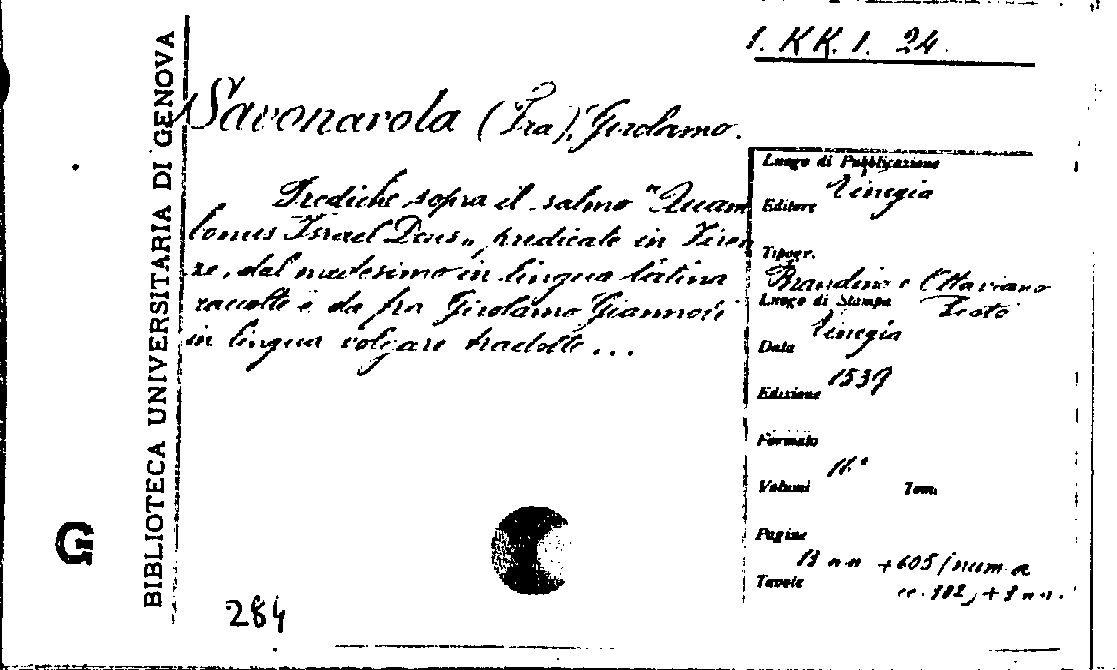 1. KK. 1. 24.
BIBLIOTECA UNIVERSITARIA DI GENOVA
Savonarola (Fra), Girolamo.
Prediche sopra il salmo "Quam
bonus Israel Deus„, predicate in Firen
ze, dal medesimo in lingua latina
raccolte e da fra Girolamo Giannoti
in lingua volgare tradotte...
Luogo di Pubblicazione
Vinegia
Editore
Tipogr.
Brandino e Ottaviano
Scoto
Luogo di Stampa
Vinegia
Data
1539
Edizione
Formato
Volumi
Tom.
Pagine
nn + 605 (num a
Tavole
G
284